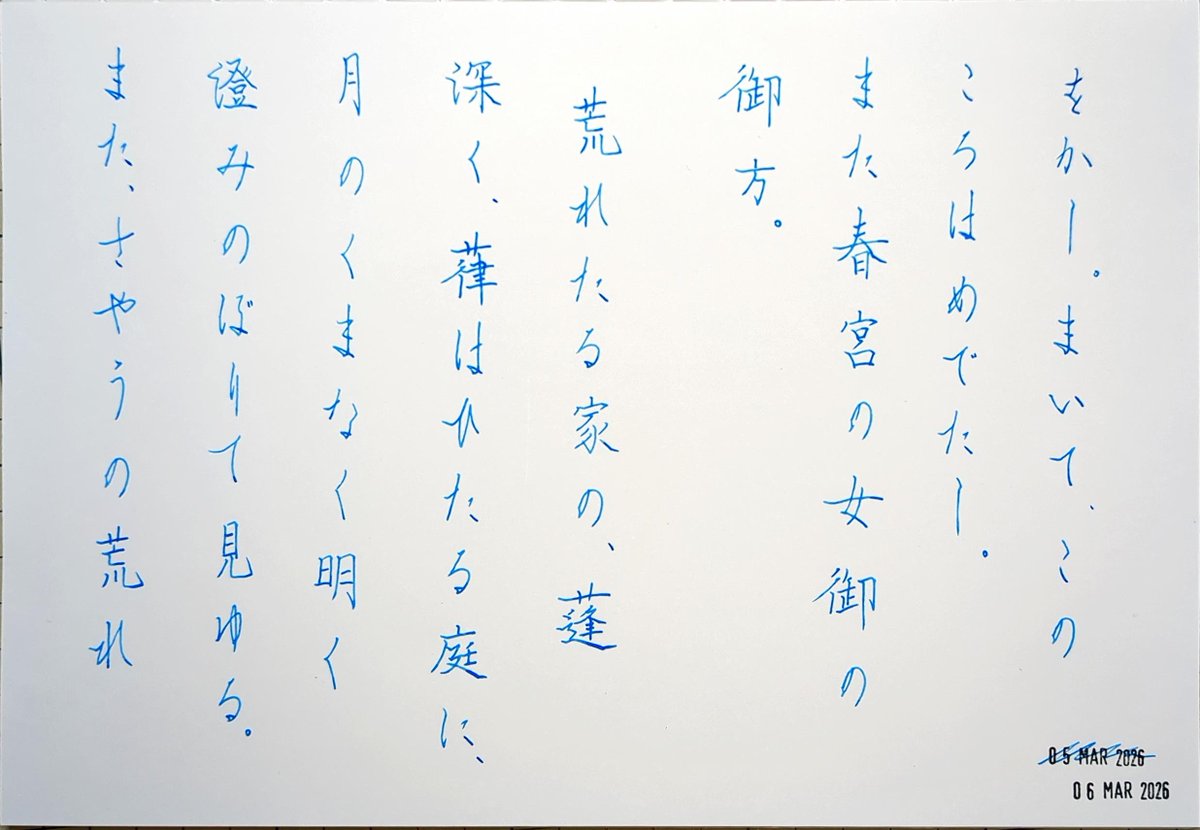 をかし。まいて、この
ころはめでたし。
また春宮の女御の
御方。
荒れたる家の、蓬
深く、葎はひたる庭に、
月のくまなく明く
澄みのぼりて見ゆる。
また、さやうの荒れ
05 MAR 2026
06 MAR 2026